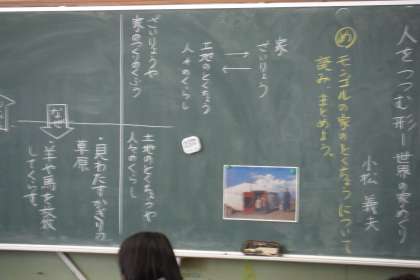 人をつつむ形ー世界の家めぐり
小松 義夫
め モンゴルの家のとくちょうについて
読み、まとめよう。
家
ざいりょう
土地のとくちょう
人々のくらし
ざいりょうや
家のつくりのくふう
土地のとくちょうや
人々のくらし
なぜ
・見わたすかぎりの
草原
・羊や馬を放牧
してくらす。